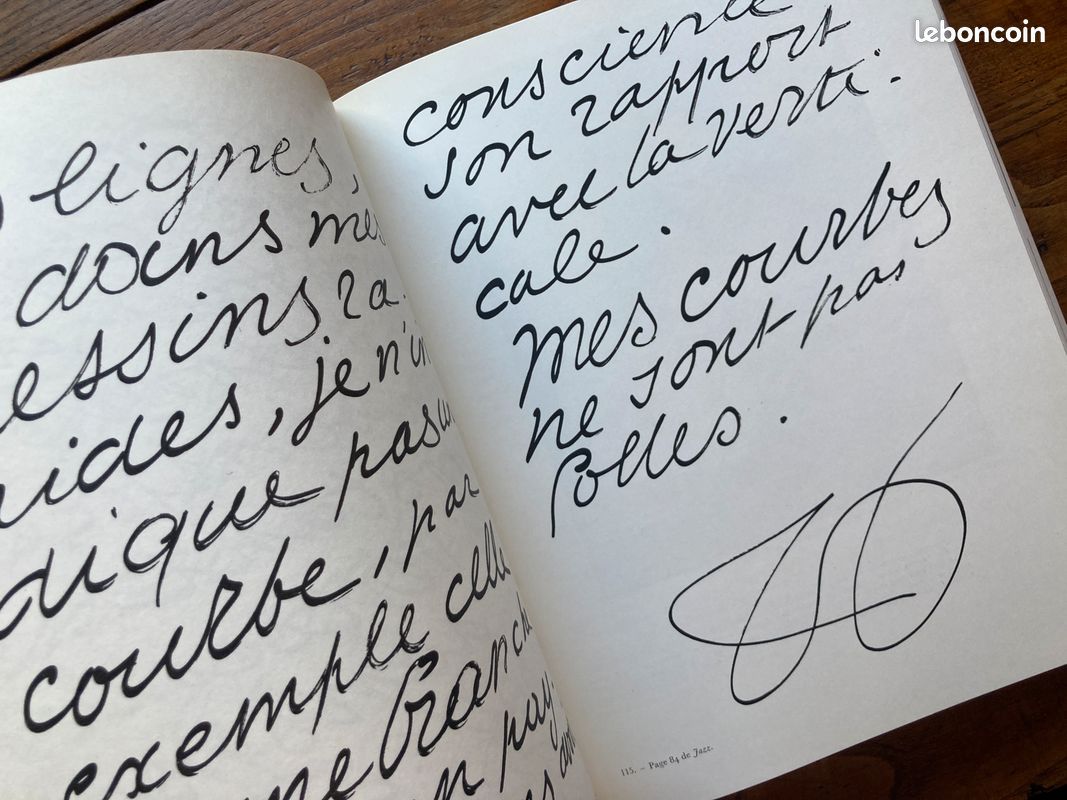 leboncoin
lignes,
dans mes
essins ra-
ides, je n'in
dique pas
courbe, par
exemple celle
ne branche
pay
conscience
son rapport
avec la verti-
cale.
Mes courbes
ne sont pas
folles.
115. – Page 84 de Jazz.